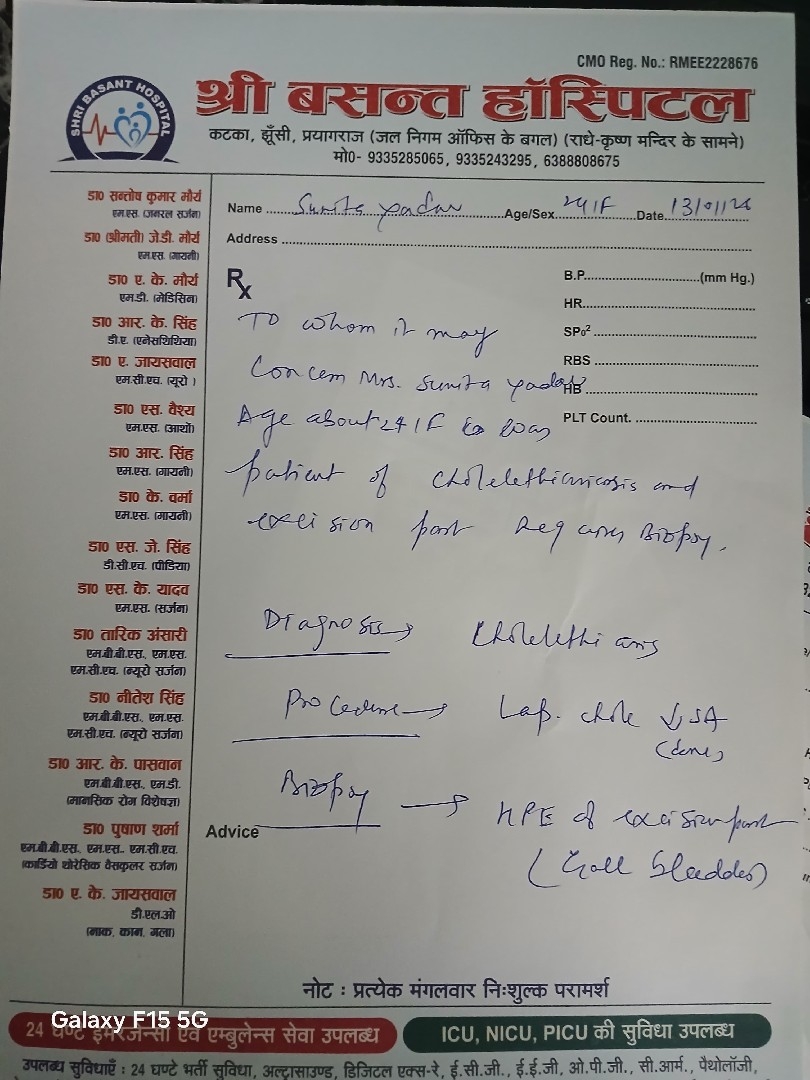 CMO Reg. No.: RMEE2228676
SHRI BASANT HOSPITAL
श्री बसन्त हॉस्पिटल
कटका, झूँसी, प्रयागराज (जल निगम ऑफिस के बगल) (राधे-कृष्ण मन्दिर के सामने)
मो0- 9335285065, 9335243295, 6388808675
डा0 सन्तोष कुमार मौर्य
एम.एस. (जनरल सर्जन)
डा0 (श्रीमती) जे.डी. मौर्य
एम.एस. (गायनी)
डा0 ए. के. मौर्य
एम.डी. (मेडिसिन)
डा0 आर. के. सिंह
डी.ए. (एनेसथिथिया)
डा0 ए. जायसवाल
एम.सी.एच. (यूरो )
डा0 एस. वैश्य
एम.एस. (आर्थो)
डा0 आर. सिंह
एम.एस. (गायनी)
डा0 के. वर्मा
एम.एस. (गायनी)
डा0 एस. जे. सिंह
डी.सी.एच. (पीडिया)
डा0 एस. के. यादव
एम.एस. (सर्जन)
डा0 तारिक अंसारी
एम.बी.बी.एस., एम.एस.
एम.सी.एच. (न्यूरो सर्जन)
डा0 नीतेश सिंह
एम.बी.बी.एस., एम.एस.
एम.सी.एच. (न्यूरो सर्जन)
डा0 आर. के. पासवान
एम.बी.बी.एस., एम.डी.
(मानसिक रोग विशेषज्ञ)
डा0 पुषाण शर्मा
एम.बी.बी.एस., एम.एस., एम.सी.एच.
(कार्डियो थोरेसिक वैसकुलर सर्जन)
डा0 ए. के. जायसवाल
डी.एल.ओ
(नाक, कान, गला)
Name Sunita Yadav Age/Sex 24/F Date 13/01/26
Address
Rx
B.P. (mm Hg.)
HR
SPo²
RBS
HB
PLT Count.
To whom it may
Concern Mrs. Sunita Yadav
Age about 24/F was
patient of and
excision part Biopsy.
Diagnosis →
Procedure → Lap. chole
(done)
Biopsy → HPE of excision part
(Gall bladder)
Advice
नोट : प्रत्येक मंगलवार निःशुल्क परामर्श
24 घण्टे इमरजेन्सी एवं एम्बुलेन्स सेवा उपलब्ध
ICU, NICU, PICU की सुविधा उपलब्ध
Galaxy F15 5G
उपलब्ध सुविधाएँ : 24 घण्टे भर्ती सुविधा, अल्ट्रासाउण्ड, डिजिटल एक्स-रे, ई.सी.जी., ई.ई.जी, ओ.पी.जी., सी.आर्म., पैथोलॉजी,